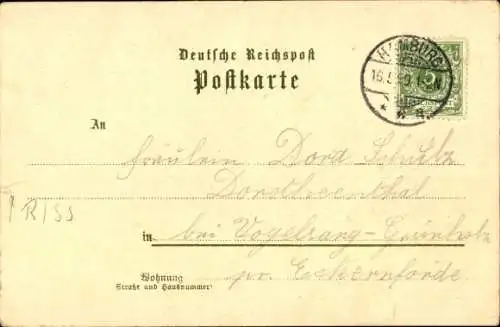 Deutsche Reichspost
Postkarte
HAMBURG
16.5.90. 1-2N.
* 6 a.
5
An
Fräulein Dora Schultz
Dorotheenthal
RISS
in bei Vogelsang-Grünholz
pr. Eckernförde
Wohnung
Straße und Hausnummer